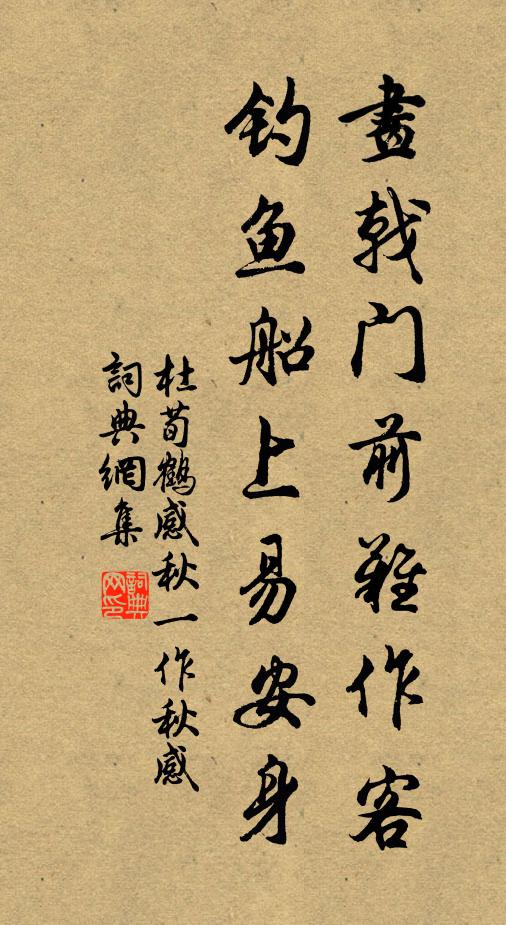 畫戟门前難作客
钓鱼船上易安身
杜荀鶴感秋一作秋感
詞典網集
詞典网印